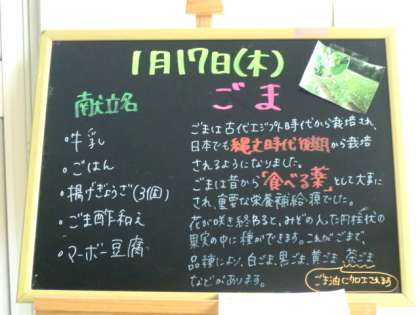 1月17日(木)
献立名
・牛乳
・ごはん
・揚げぎょうざ(3個)
・ごま酢和え
・マーボー豆腐
ごま
ごまは古代エジプト時代から栽培され、
日本でも縄文時代後期から栽培
されるようになりました。
ごまは昔から「食べる薬」として大事に
され、重要な栄養補給源でした。
花が咲き終わると、みどの入った円柱状の
果実の中に種ができます。これがごまで、
品種により、白ごま、黒ごま、黄ごま、茶ごま
などがあります。
ごま油に加工される